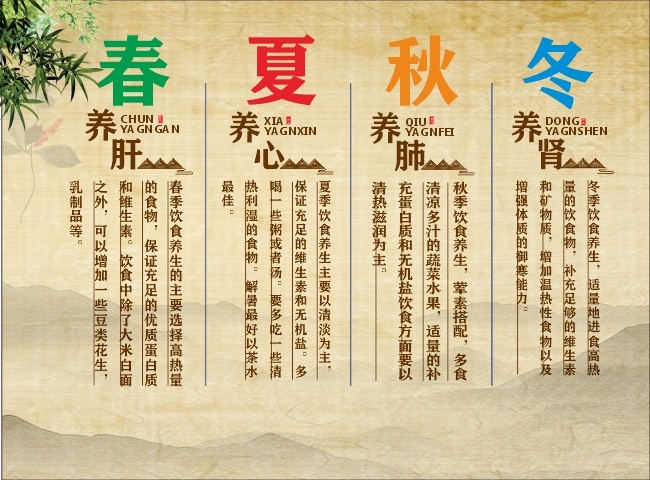 春
养肝
CHUN
YAGNGAN
春季饮食养生的主要选择高热量
的食物，保证充足的优质蛋白质
和维生素。饮食中除了大米白面
之外，可以增加一些豆类花生，
乳制品等。
夏
养心
XIA
YAGNXIN
夏季饮食养生主要以清淡为主，
保证充足的维生素和无机盐。多
喝一些粥或者汤。要多吃一些清
热利湿的食物。解暑最好以茶水
最佳。
秋
养肺
QIU
YAGNFEI
秋季饮食养生，荤素搭配，多食
清凉多汁的蔬菜水果，适量的补
充蛋白质和无机盐饮食方面要以
清热滋润为主。
冬
养肾
DONG
YAGNSHEN
冬季饮食养生，适量地进食高热
量的饮食物，补充足够的维生素
和矿物质，增加温热性食物以及
增强体质的御寒能力。